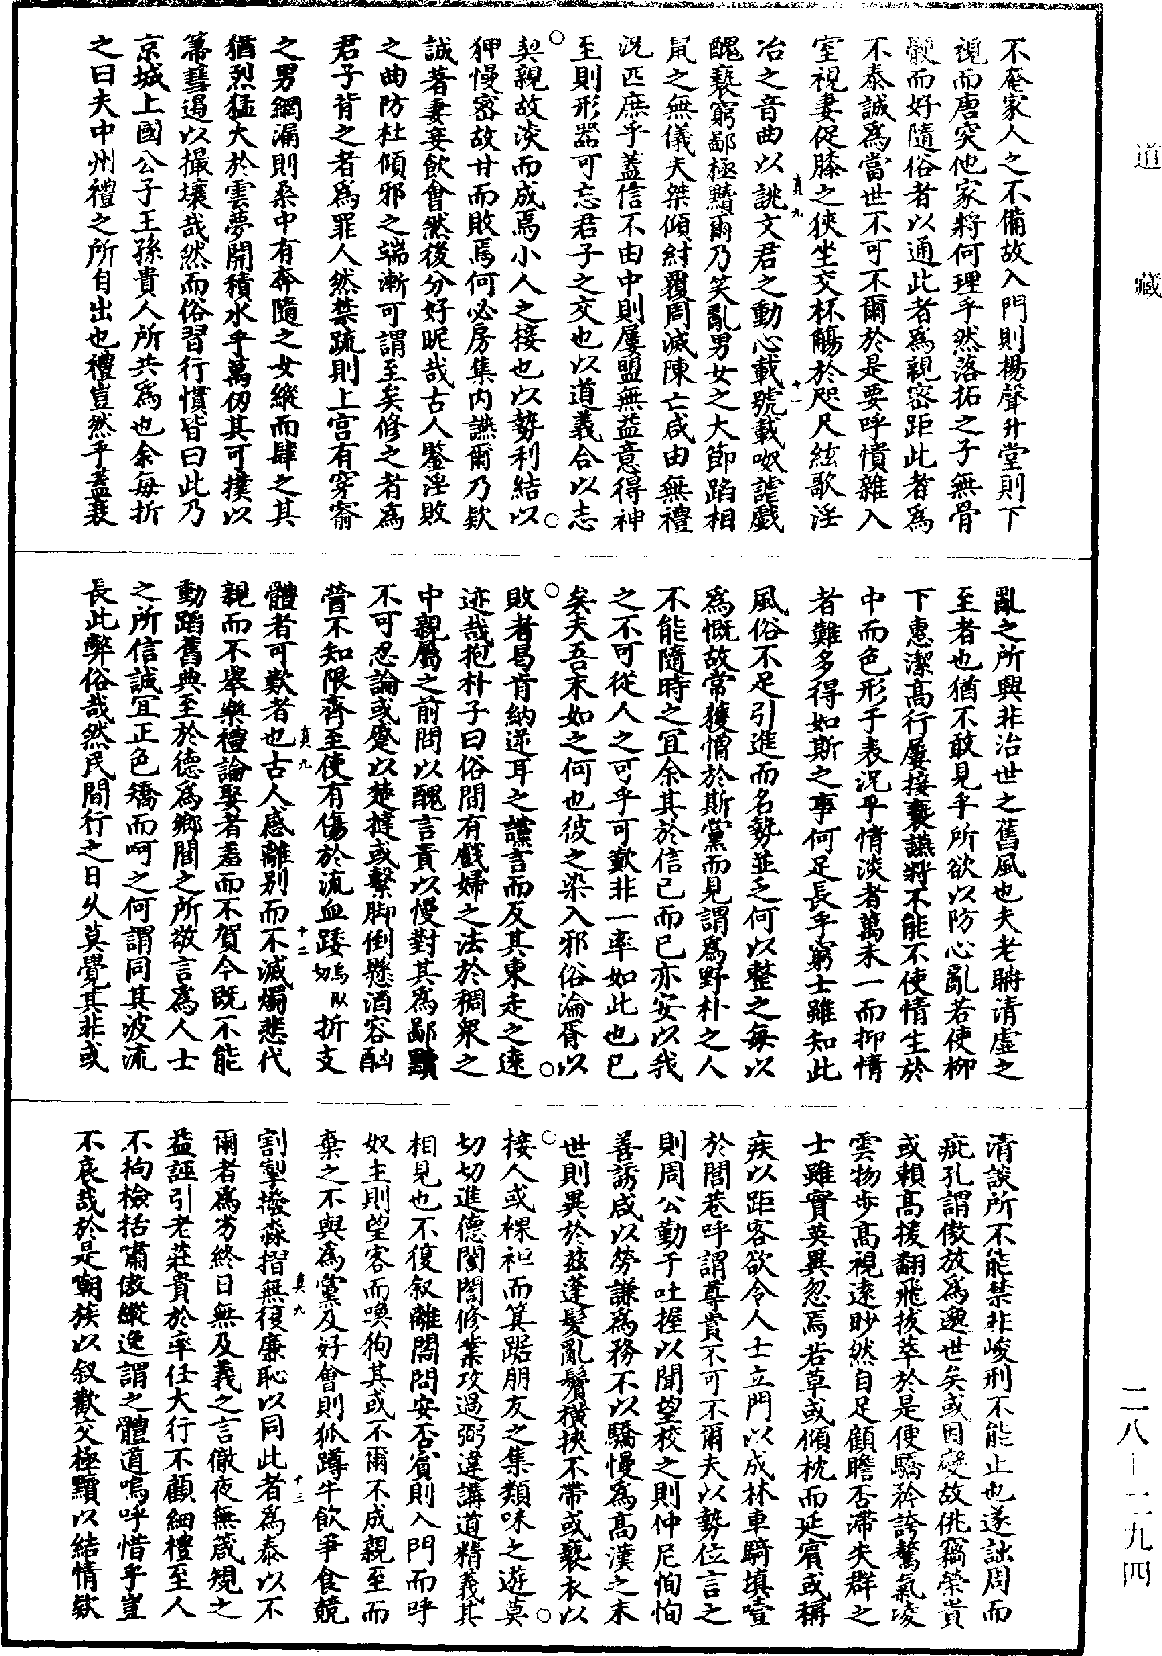 道藏
不庭家人之不備故入門則揚聲升堂則下
視而唐突他家將何理乎然落拓之子無骨
骾而好隨俗者以通此者為親密距此者為
不泰誠為當世不可不爾於是要呼憒雜入
室視妻促膝之狹坐交杯觴於咫尺絃歌淫
冶之音曲以誂文君之動心載號載呶謔戲
醜褻窮鄙極黷爾乃笑亂男女之大節蹈相
鼠之無儀夫桀傾紂覆周滅陳亡咸由無禮
況匹庶乎蓋信不由中則屢盟無益意得神
至則形器可忘君子之交也以道義合以志
契親故淡而成焉小人之接也以勢利結以
狎慢密故甘而敗焉何必房集內讌爾乃欵
誠著妻妾飲會然後分好昵哉古人鑒淫敗
之曲防杜傾邪之端漸可謂至矣修之者為
君子背之者為罪人然禁疏則上宮有穿窬
之男網漏則桑中有奔隨之女縱而肆之其
猶烈猛火於雲夢開積水乎萬仞其可撲以
箒彗過以撮壤哉然而俗習行慣皆曰此乃
京城上國公子王孫貴人所共為也余每折
之曰夫中州禮之所自出也禮豈然乎蓋衰
真九
十一
亂之所興非治世之舊風也夫老聃清虛之
至者也猶不敢見乎所欲以防心亂若使柳
下惠潔高行屢接褻讌將不能不使情生於
中而色形乎表況乎情淡者萬未一而抑情
者難多得如斯之事何足長乎窮士雖知此
風俗不足引進而名勢並乏何以整之每以
為慨故常獲憎於斯黨而見謂為野朴之人
不能隨時之宜余其於信己而已亦安以我
之不可從人之可乎可歎非一率如此也已
矣夫吾末如之何也彼之染入邪俗淪胥以
敗者曷肯納逆耳之讜言而反其東走之遠
迹哉抱朴子曰俗間有戲婦之法於稠眾之
中親屬之前問以醜言責以慢對其為鄙黷
不可忍論或蹙以楚撻或繫脚倒懸酒客酗
醟不知限齊至使有傷於流血踒烏臥切折支
體者可歎者也古人感離別而不滅燭悲代
親而不舉樂禮論娶者羞而不賀今既不能
動蹈舊典至於德為鄉閭之所敬言為人士
之所信誠宜正色矯而呵之何謂同其波流
長此弊俗哉然民間行之日久莫覺其非或
真九
十二
清談所不能禁非峻刑不能止也遂詘周而
疵孔謂傲放為邈世矣或因變故佻竊榮貴
或賴高援翻飛拔萃於是便驕矜誇驁氣凌
雲物步高視遠眇然自足顧瞻否滯失群之
士雖實英異忽焉若草或傾枕而延賓或稱
疾以距客欲令人士立門以成林車騎填噎
於閭巷呼謂尊貴不可不爾夫以勢位言之
則周公勤于吐握以聞望校之則仲尼恂恂
善誘咸以勞謙為務不以驕慢為高漢之末
世則異於茲蓬髮亂鬢橫挾不帶或褻衣以
接人或裸袒而箕踞朋友之集類味之遊莫
切切進德誾誾修業攻過弼違講道精義其
相見也不復叙離闊問安否賓則入門而呼
奴主則望客而喚狗其或不爾不成親至而
棄之不與為黨及好會則狐蹲牛飲爭食競
割掣撥淼摺無復廉恥以同此者為泰以不
爾者為劣終日無及義之言徹夜無箴規之
益誣引老莊貴於率任大行不顧細禮至人
不拘檢括嘯傲縱逸謂之體道嗚呼惜乎豈
不哀哉於是嘲族以叙歡交極黷以結情欵
真九
十三
二八—一九四